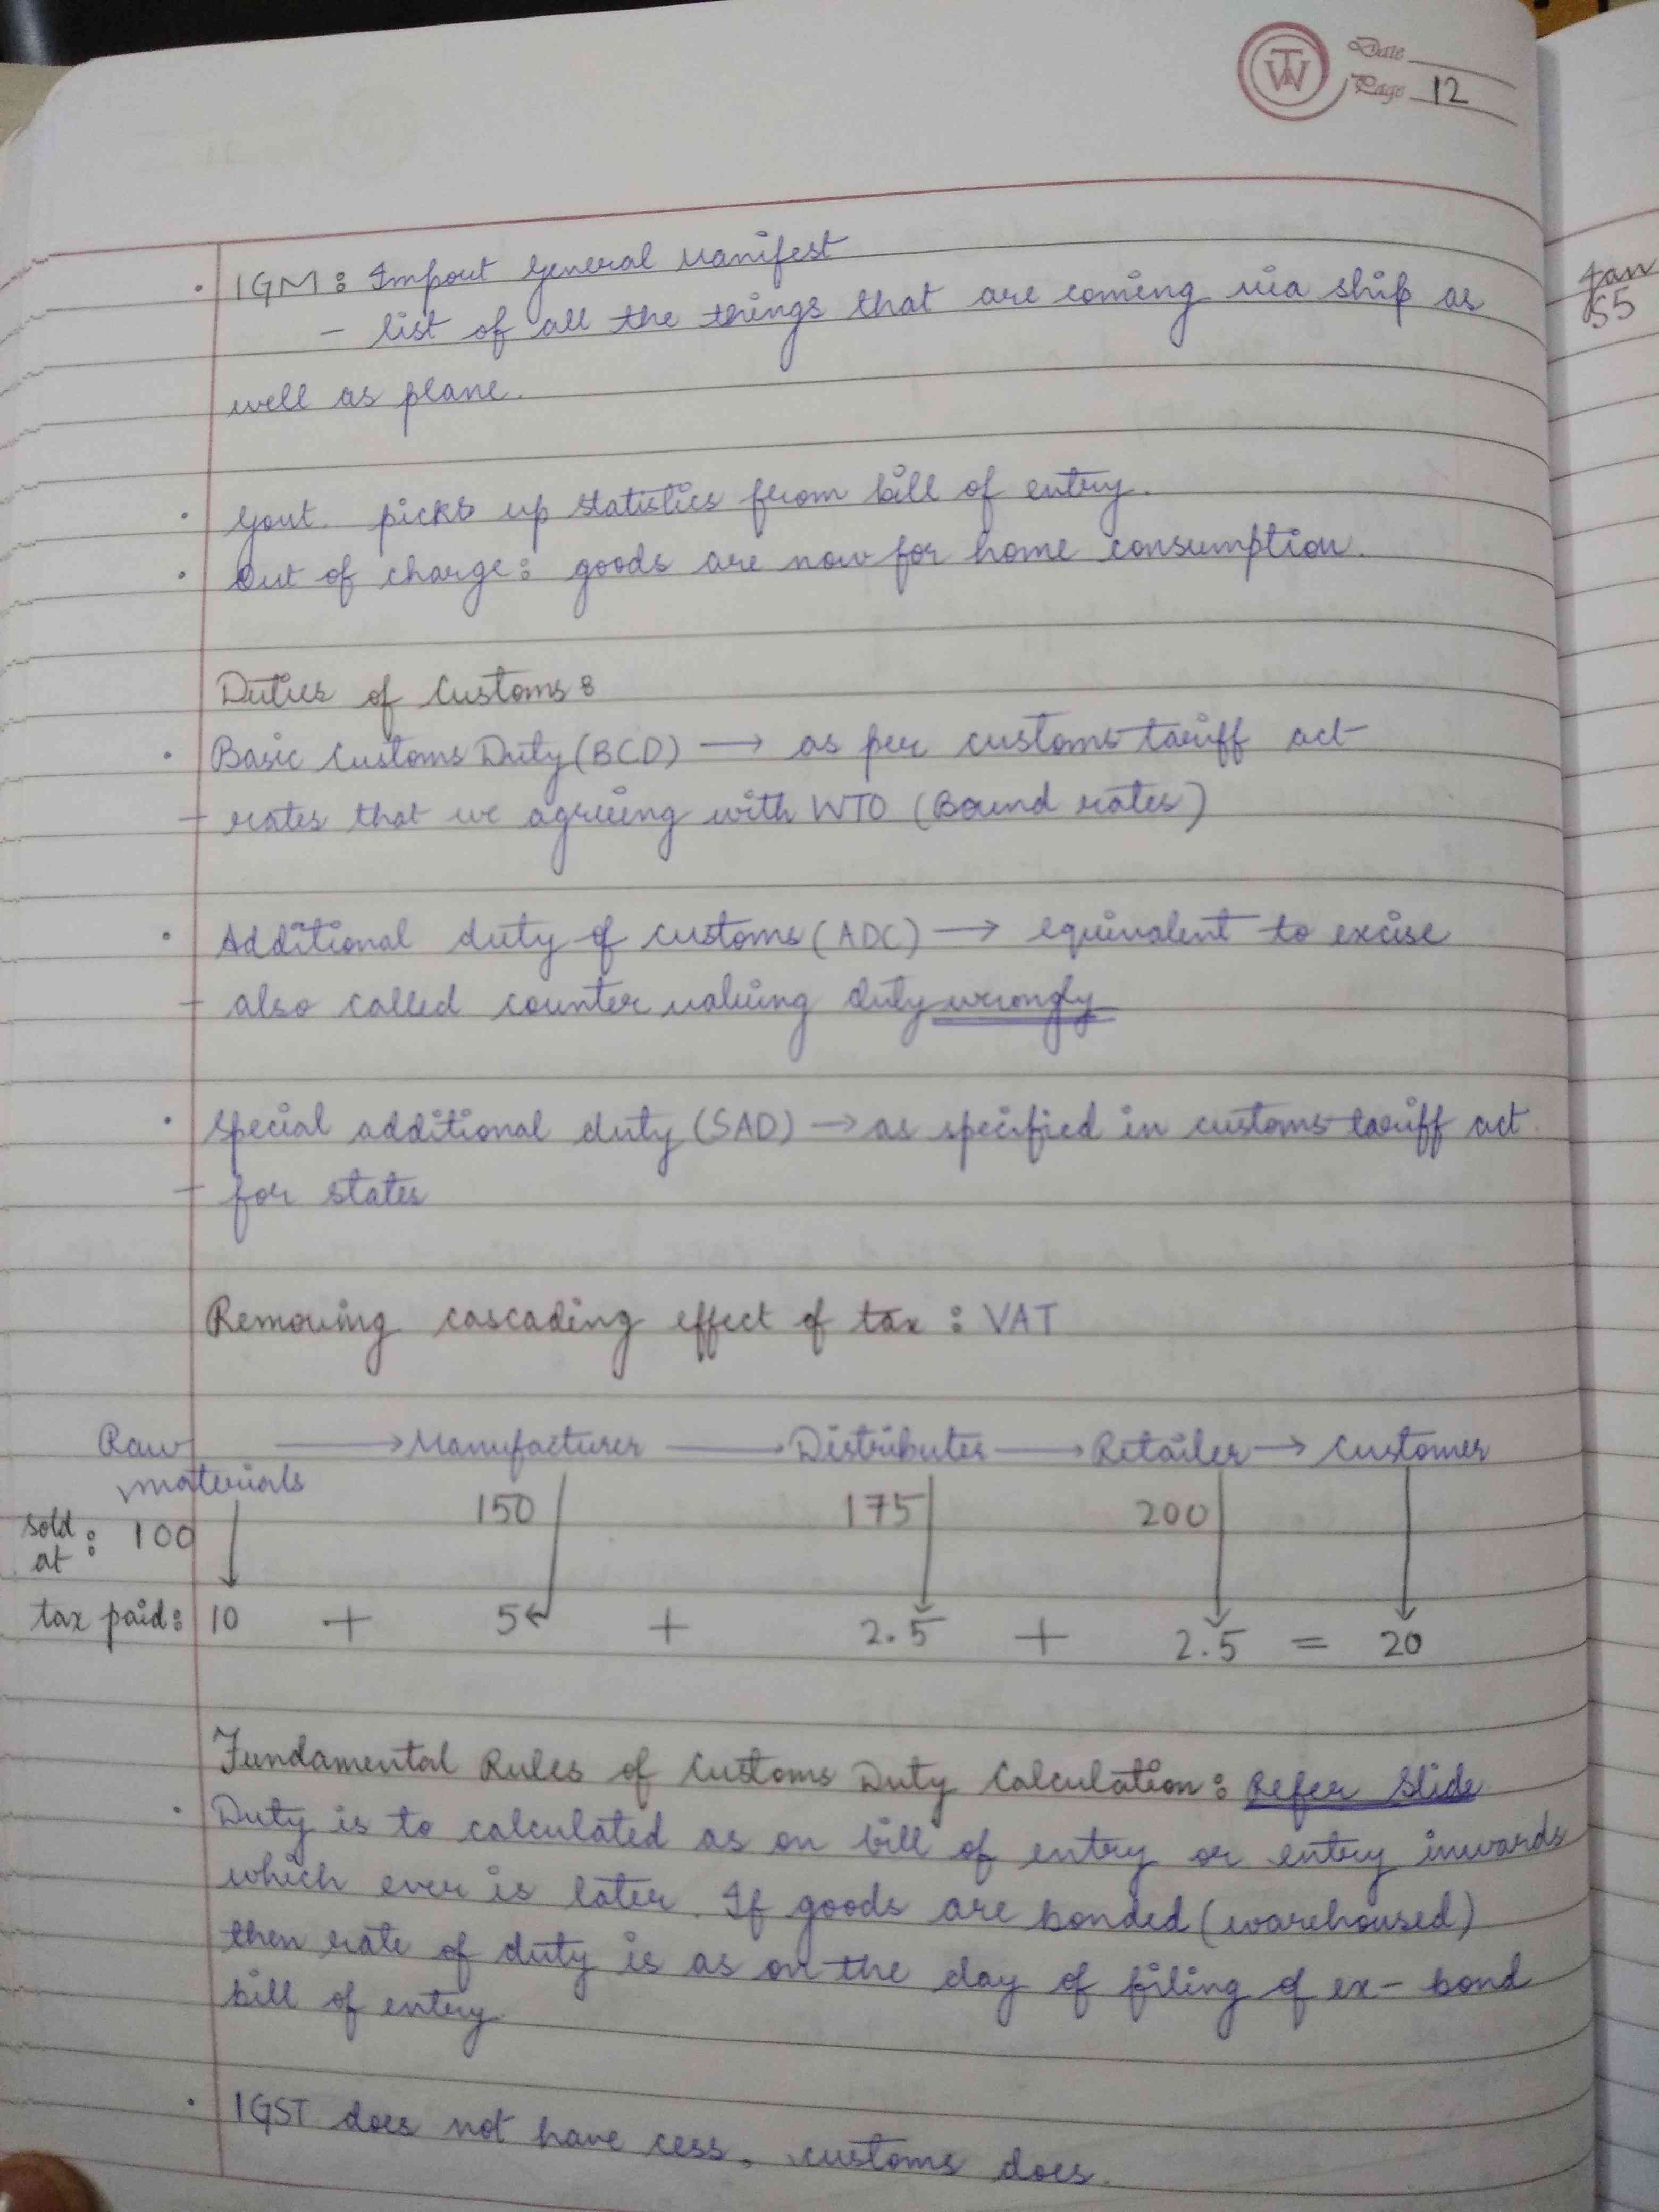 TW
Date
Page 12
• IGM: Import General Manifest
- list of all the things that are coming via ship as
well as plane.
• Govt. picks up statistics from bill of entry.
• Out of charge: goods are now for home consumption.
Duties of Customs:
• Basic Customs Duty (BCD) → as per customs tariff act
- rates that we agreeing with WTO (Bound rates)
• Additional duty of customs (ADC) → equivalent to excise
- also called counter valuing duty wrongly
• Special additional duty (SAD) → as specified in customs tariff act.
- for states
Removing cascading effect of tax: VAT
Raw → Manufacturer → Distributer → Retailer → Customer
materials
sold at: 100 150 175 200
tax paid: 10 + 5 + 2.5 + 2.5 = 20
Fundamental Rules of Customs Duty Calculation: Refer Slide
• Duty is to calculated as on bill of entry or entry inwards
which ever is later. If goods are bonded (warehoused)
then rate of duty is as on the day of filing of ex-bond
bill of entry.
• IGST does not have cess, customs does.
55